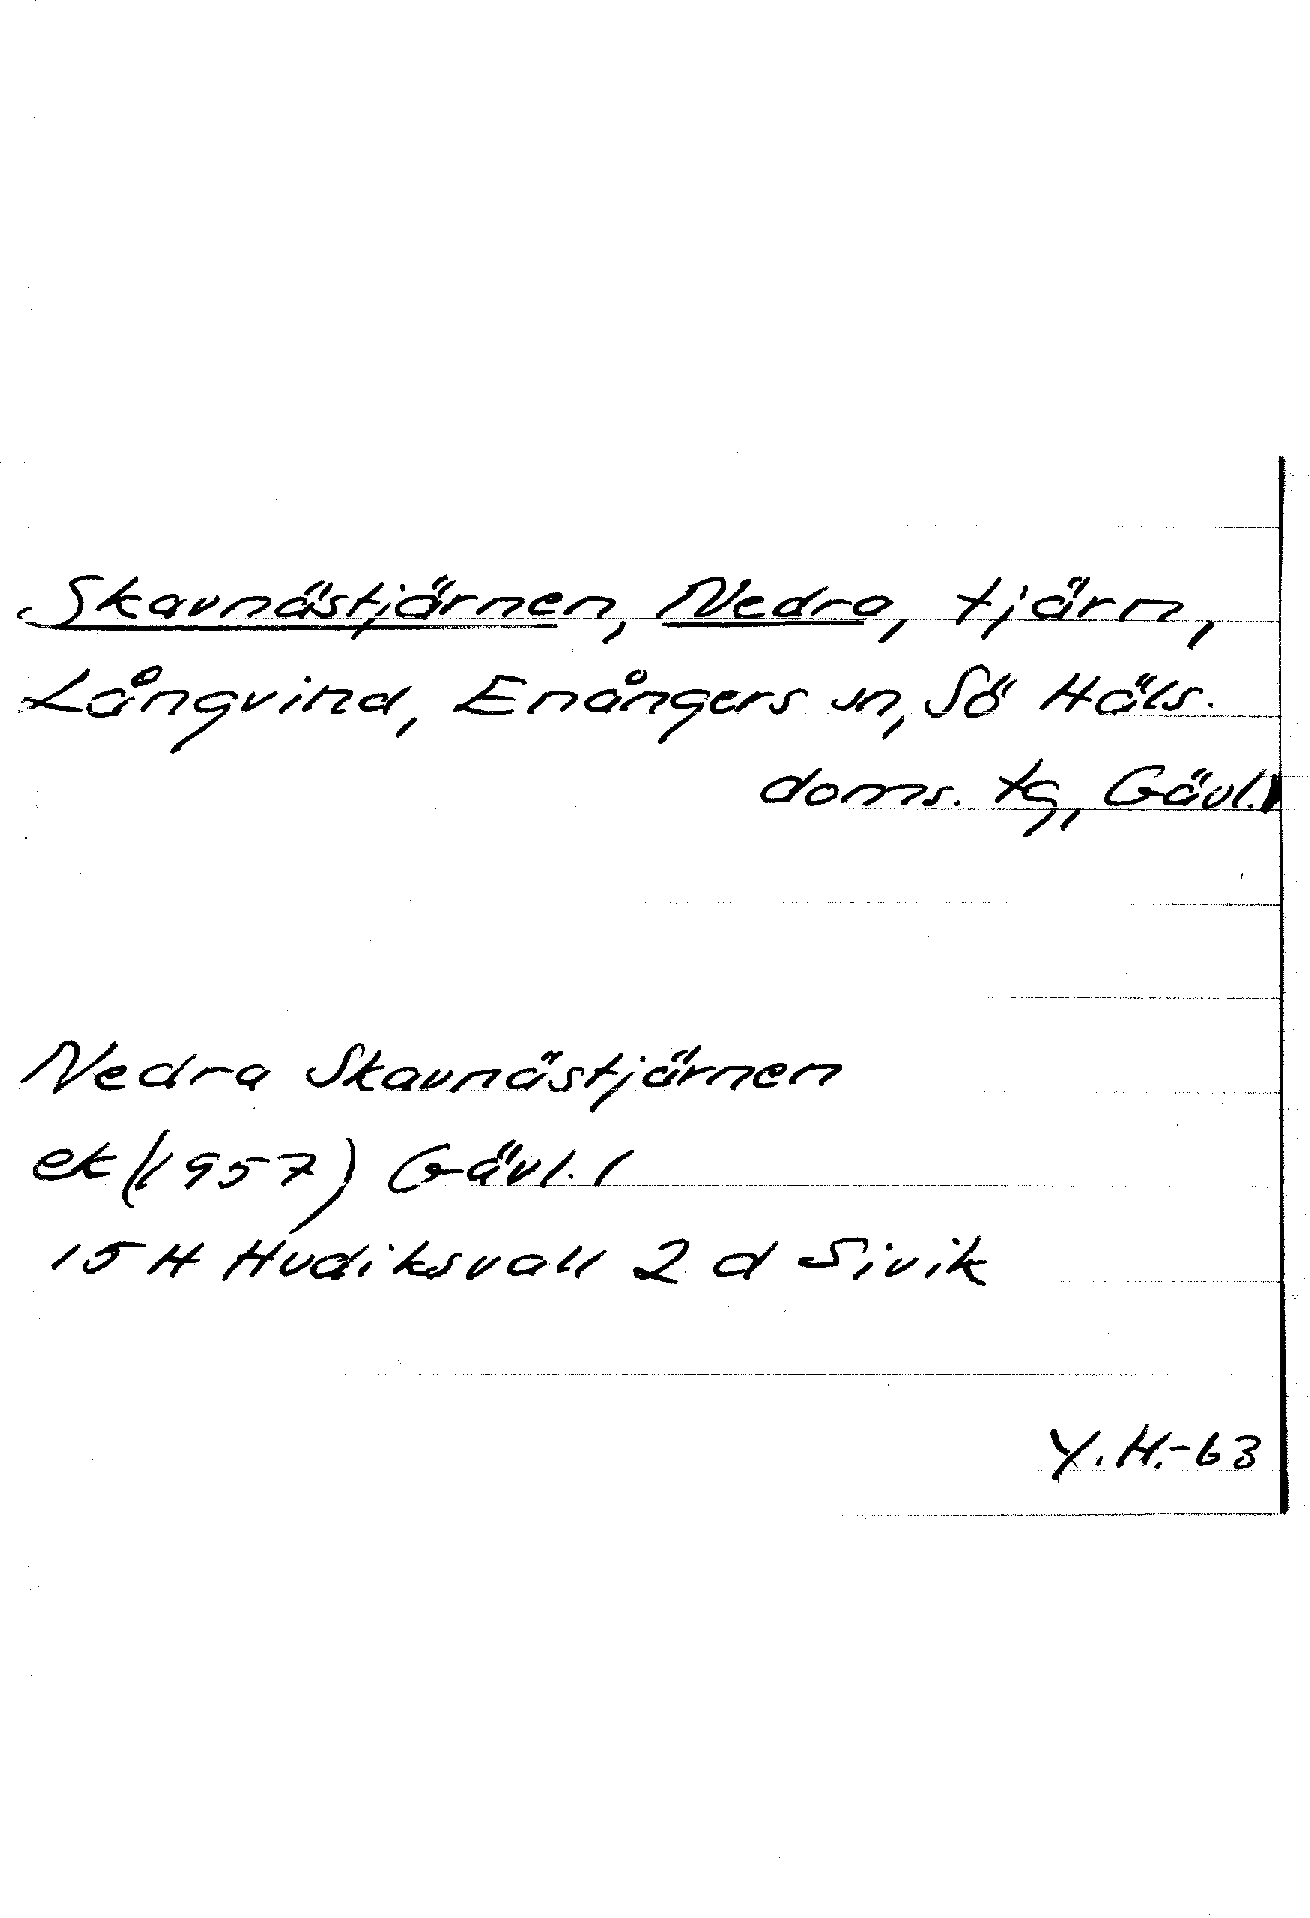 Skavnästjärnen, Nedra, tjärn,
Långvind, Enångers sn, Sö Häls.
doms. tg, Gävl. l
Nedra Skavnästjärnen
ek (1957) Gävl. l
15 H Hudiksvall 2 d Sivik
Y. H.-63